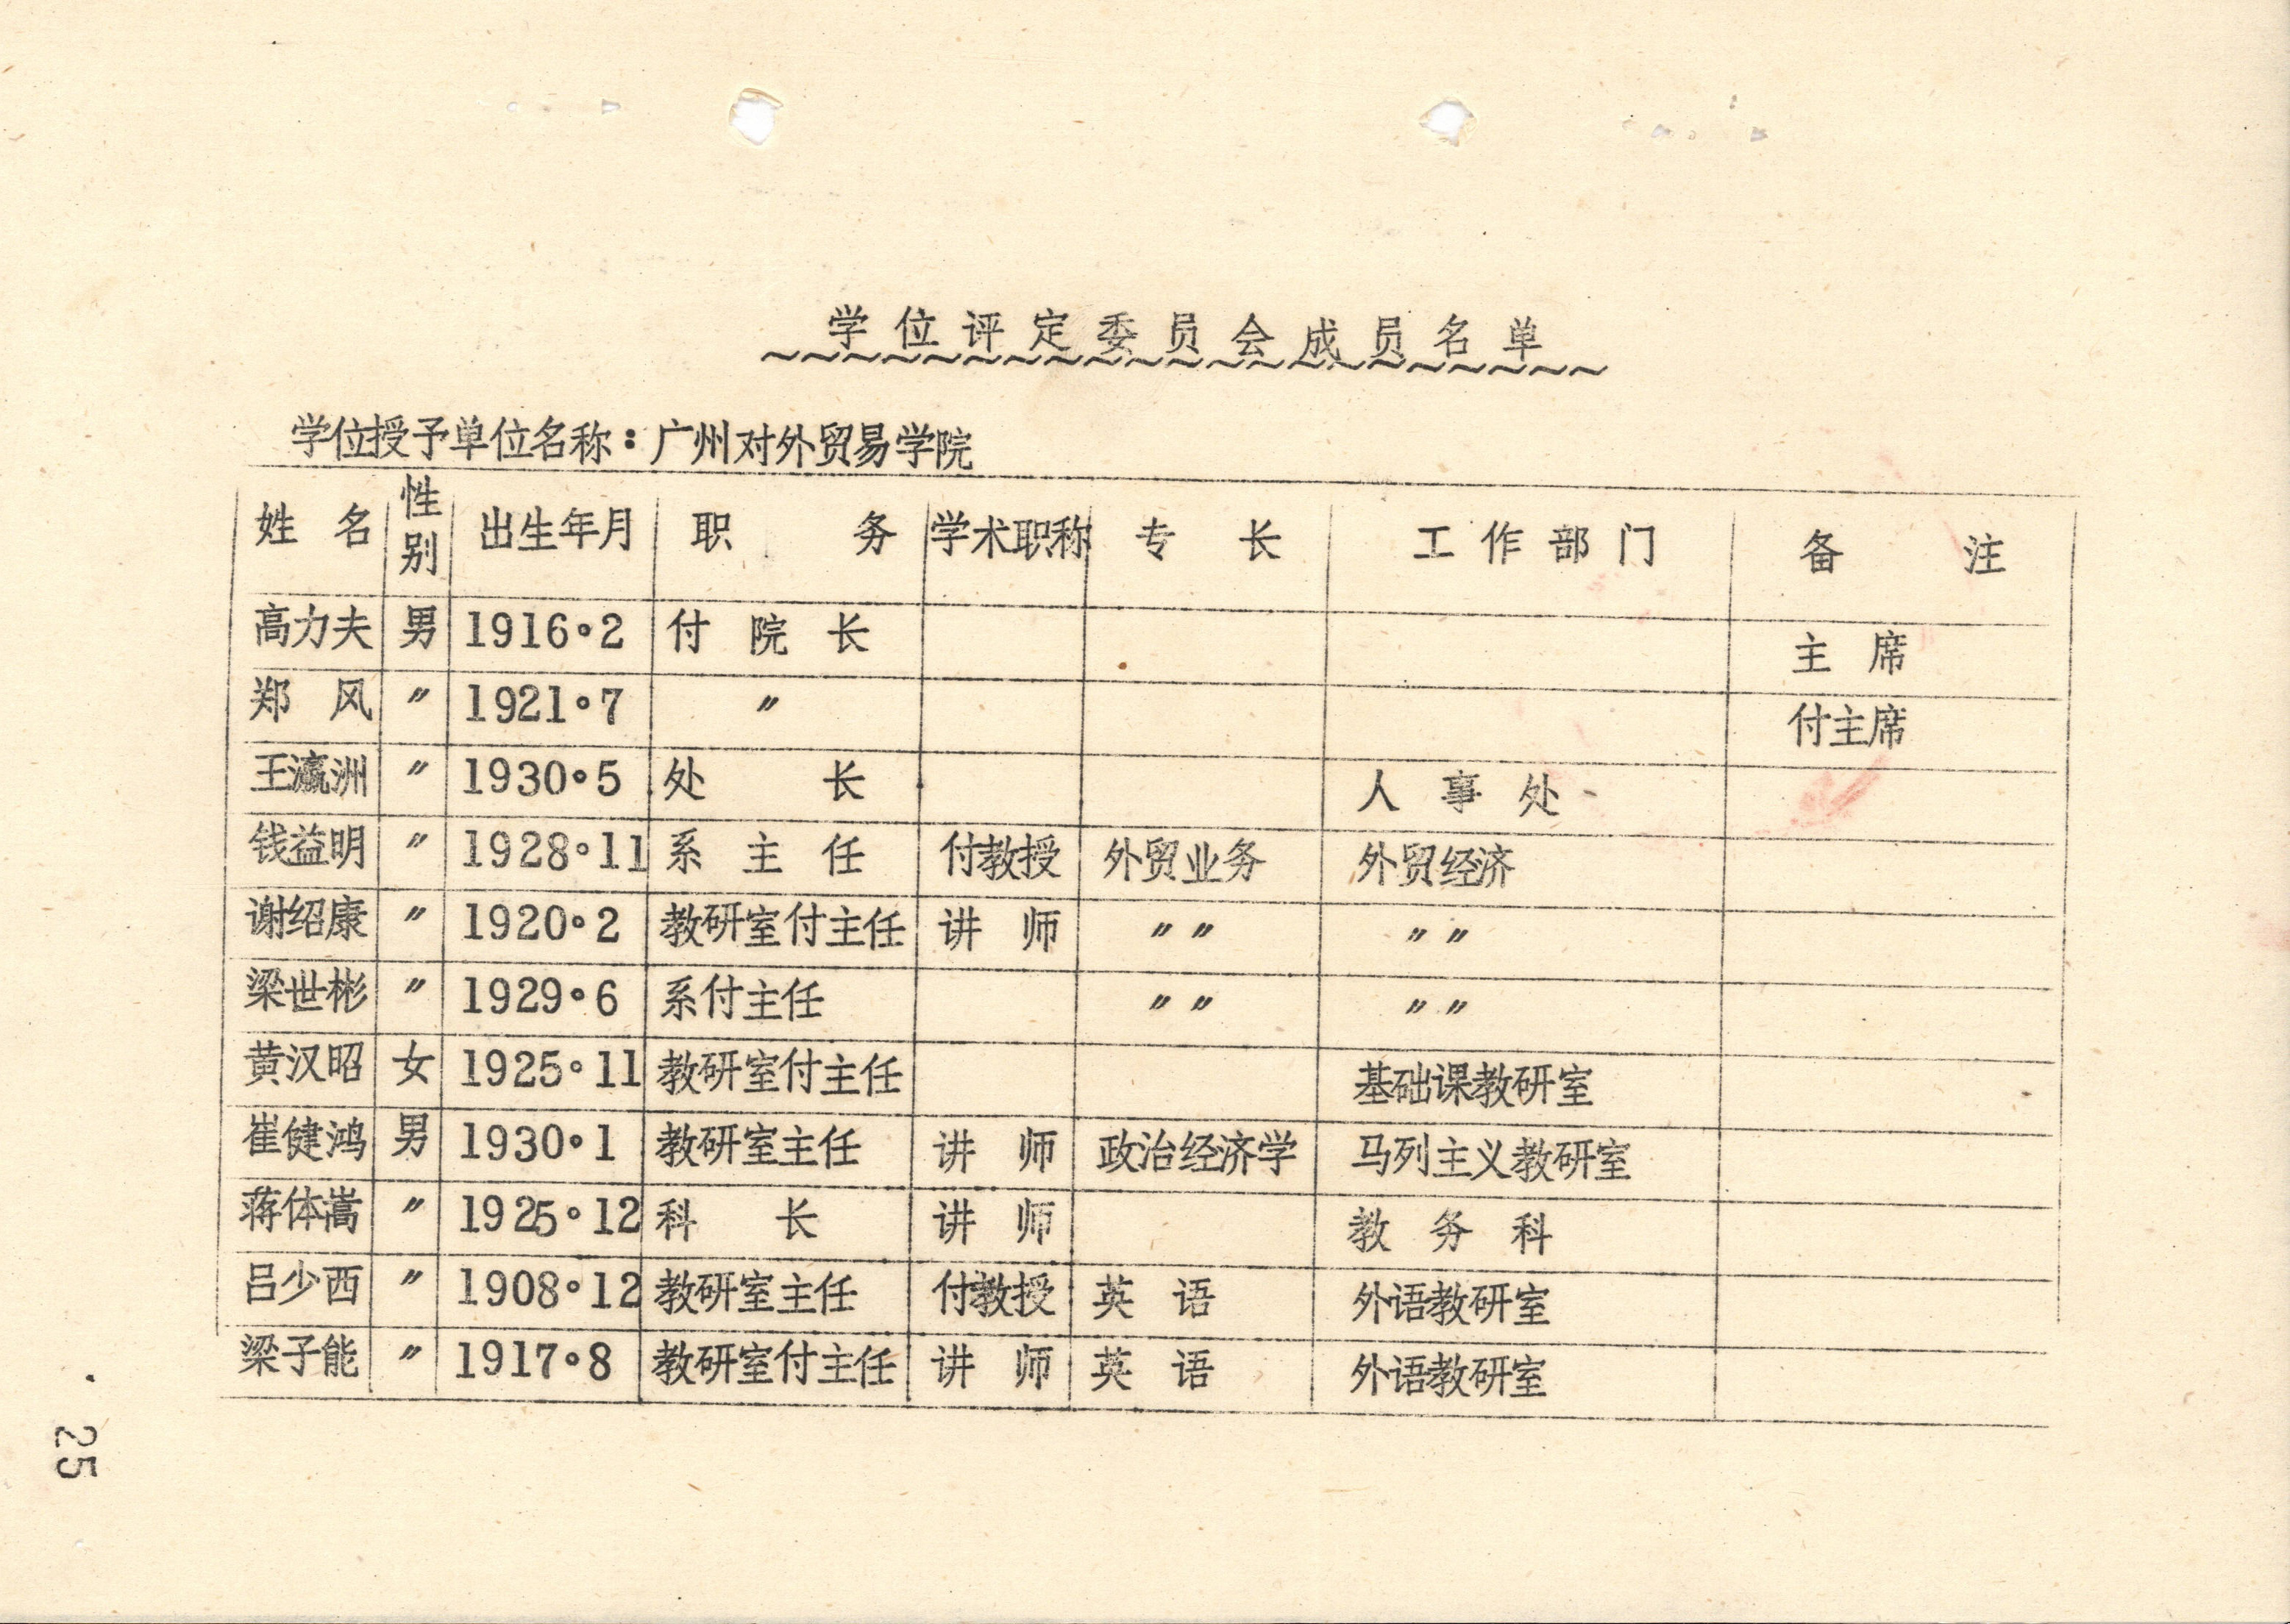 学位评定委员会成员名单
学位授予单位名称：广州对外贸易学院
姓名 性别 出生年月 职务 学术职称 专长 工作部门 备注
高力夫 男 1916·2 付院长 主席
郑风 〃 1921·7 〃 付主席
王瀛洲 〃 1930·5 处长 人事处
钱益明 〃 1928·11 系主任 付教授 外贸业务 外贸经济
谢绍康 〃 1920·2 教研室付主任 讲师 〃〃 〃〃
梁世彬 〃 1929·6 系付主任 〃〃 〃〃
黄汉昭 女 1925·11 教研室付主任 基础课教研室
崔健鸿 男 1930·1 教研室主任 讲师 政治经济学 马列主义教研室
蒋体嵩 〃 1925·12 科长 讲师 教务科
吕少西 〃 1908·12 教研室主任 付教授 英语 外语教研室
梁子能 〃 1917·8 教研室付主任 讲师 英语 外语教研室
25